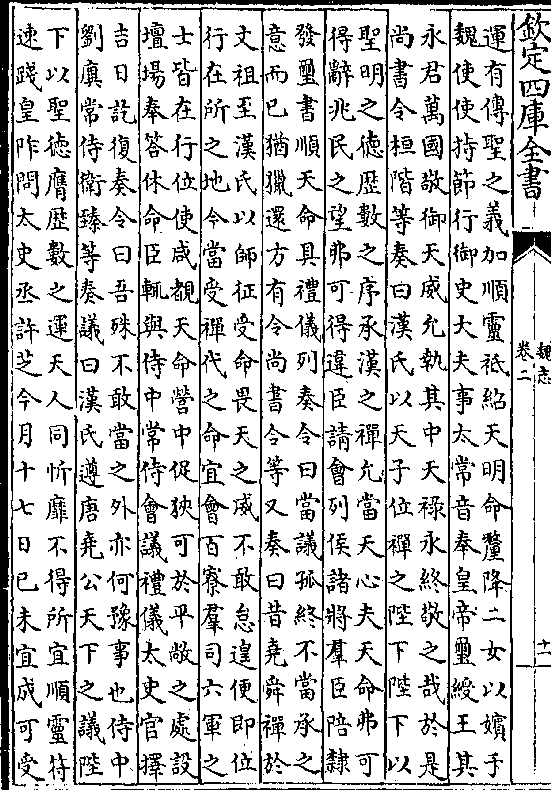 欽定四庫全書
魏志
卷二
十一
運有傳聖之義加順靈祇紹天明命釐降二女以嬪于
魏使使持節行御史大夫事太常音奉皇帝璽綬王其
永君萬國敬御天威允執其中天祿永終敬之哉於是
尚書令桓階等奏曰漢氏以天子位禪之陛下陛下以
聖明之德歴數之序承漢之禪允當天心夫天命弗可
得辭兆民之望弗可得違臣請會列侯諸將羣臣陪隸
發璽書順天命具禮儀列奏令曰當議孤終不當承之
意而已猶獵還方有令尚書令等又奏曰昔堯舜禪於
文祖至漢氏以師征受命畏天之威不敢怠遑便即位
行在所之地今當受禪代之命宜會百寮羣司六軍之
士皆在行位使咸覩天命營中促狹可於平敞之處設
壇場奉答休命臣輒與侍中常侍會議禮儀太史官擇
吉日訖復奏令曰吾殊不敢當之外亦何豫事也侍中
劉廙常侍衛臻等奏議曰漢氏遵唐堯公天下之議陛
下以聖德膺歴數之運天人同忻靡不得所宜順靈符
速踐皇阼問太史丞許芝今月十七日己未宜成可受